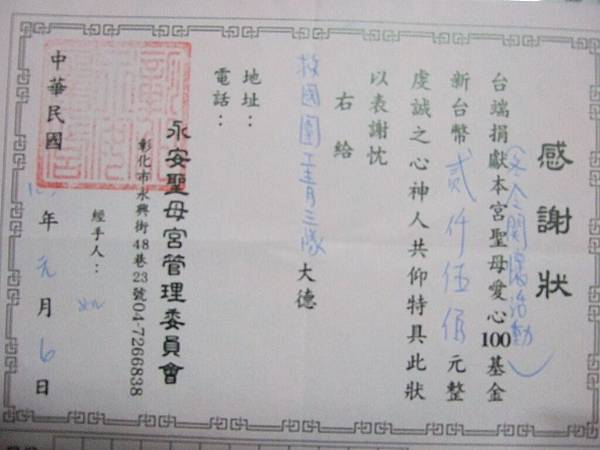 感謝狀
(冬令關懷活動)
台端捐獻本宮聖母愛心100基金
新台幣貳仟伍佰元整
虔誠之心神人共仰特具此狀
以表謝忱
右給
救國團工青三隊大德
地址：
電話：
永安聖母宮管理委員會
彰化市永興街48巷23號04-7266838
經手人：
中華民國 年元月6日